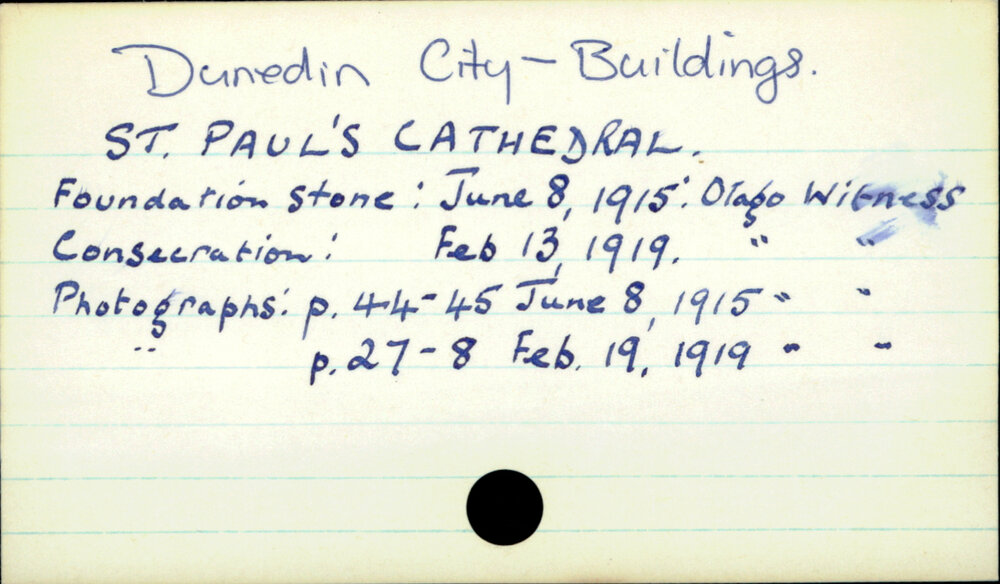 Dunedin City - Buildings.
ST. PAUL'S CATHEDRAL.
Foundation Stone: June 8, 1915: Otago Witness
Consecration: Feb 13, 1919. " "
Photographs: p. 44-45 June 8, 1915 " "
" p. 27-8 Feb. 19, 1919 " "